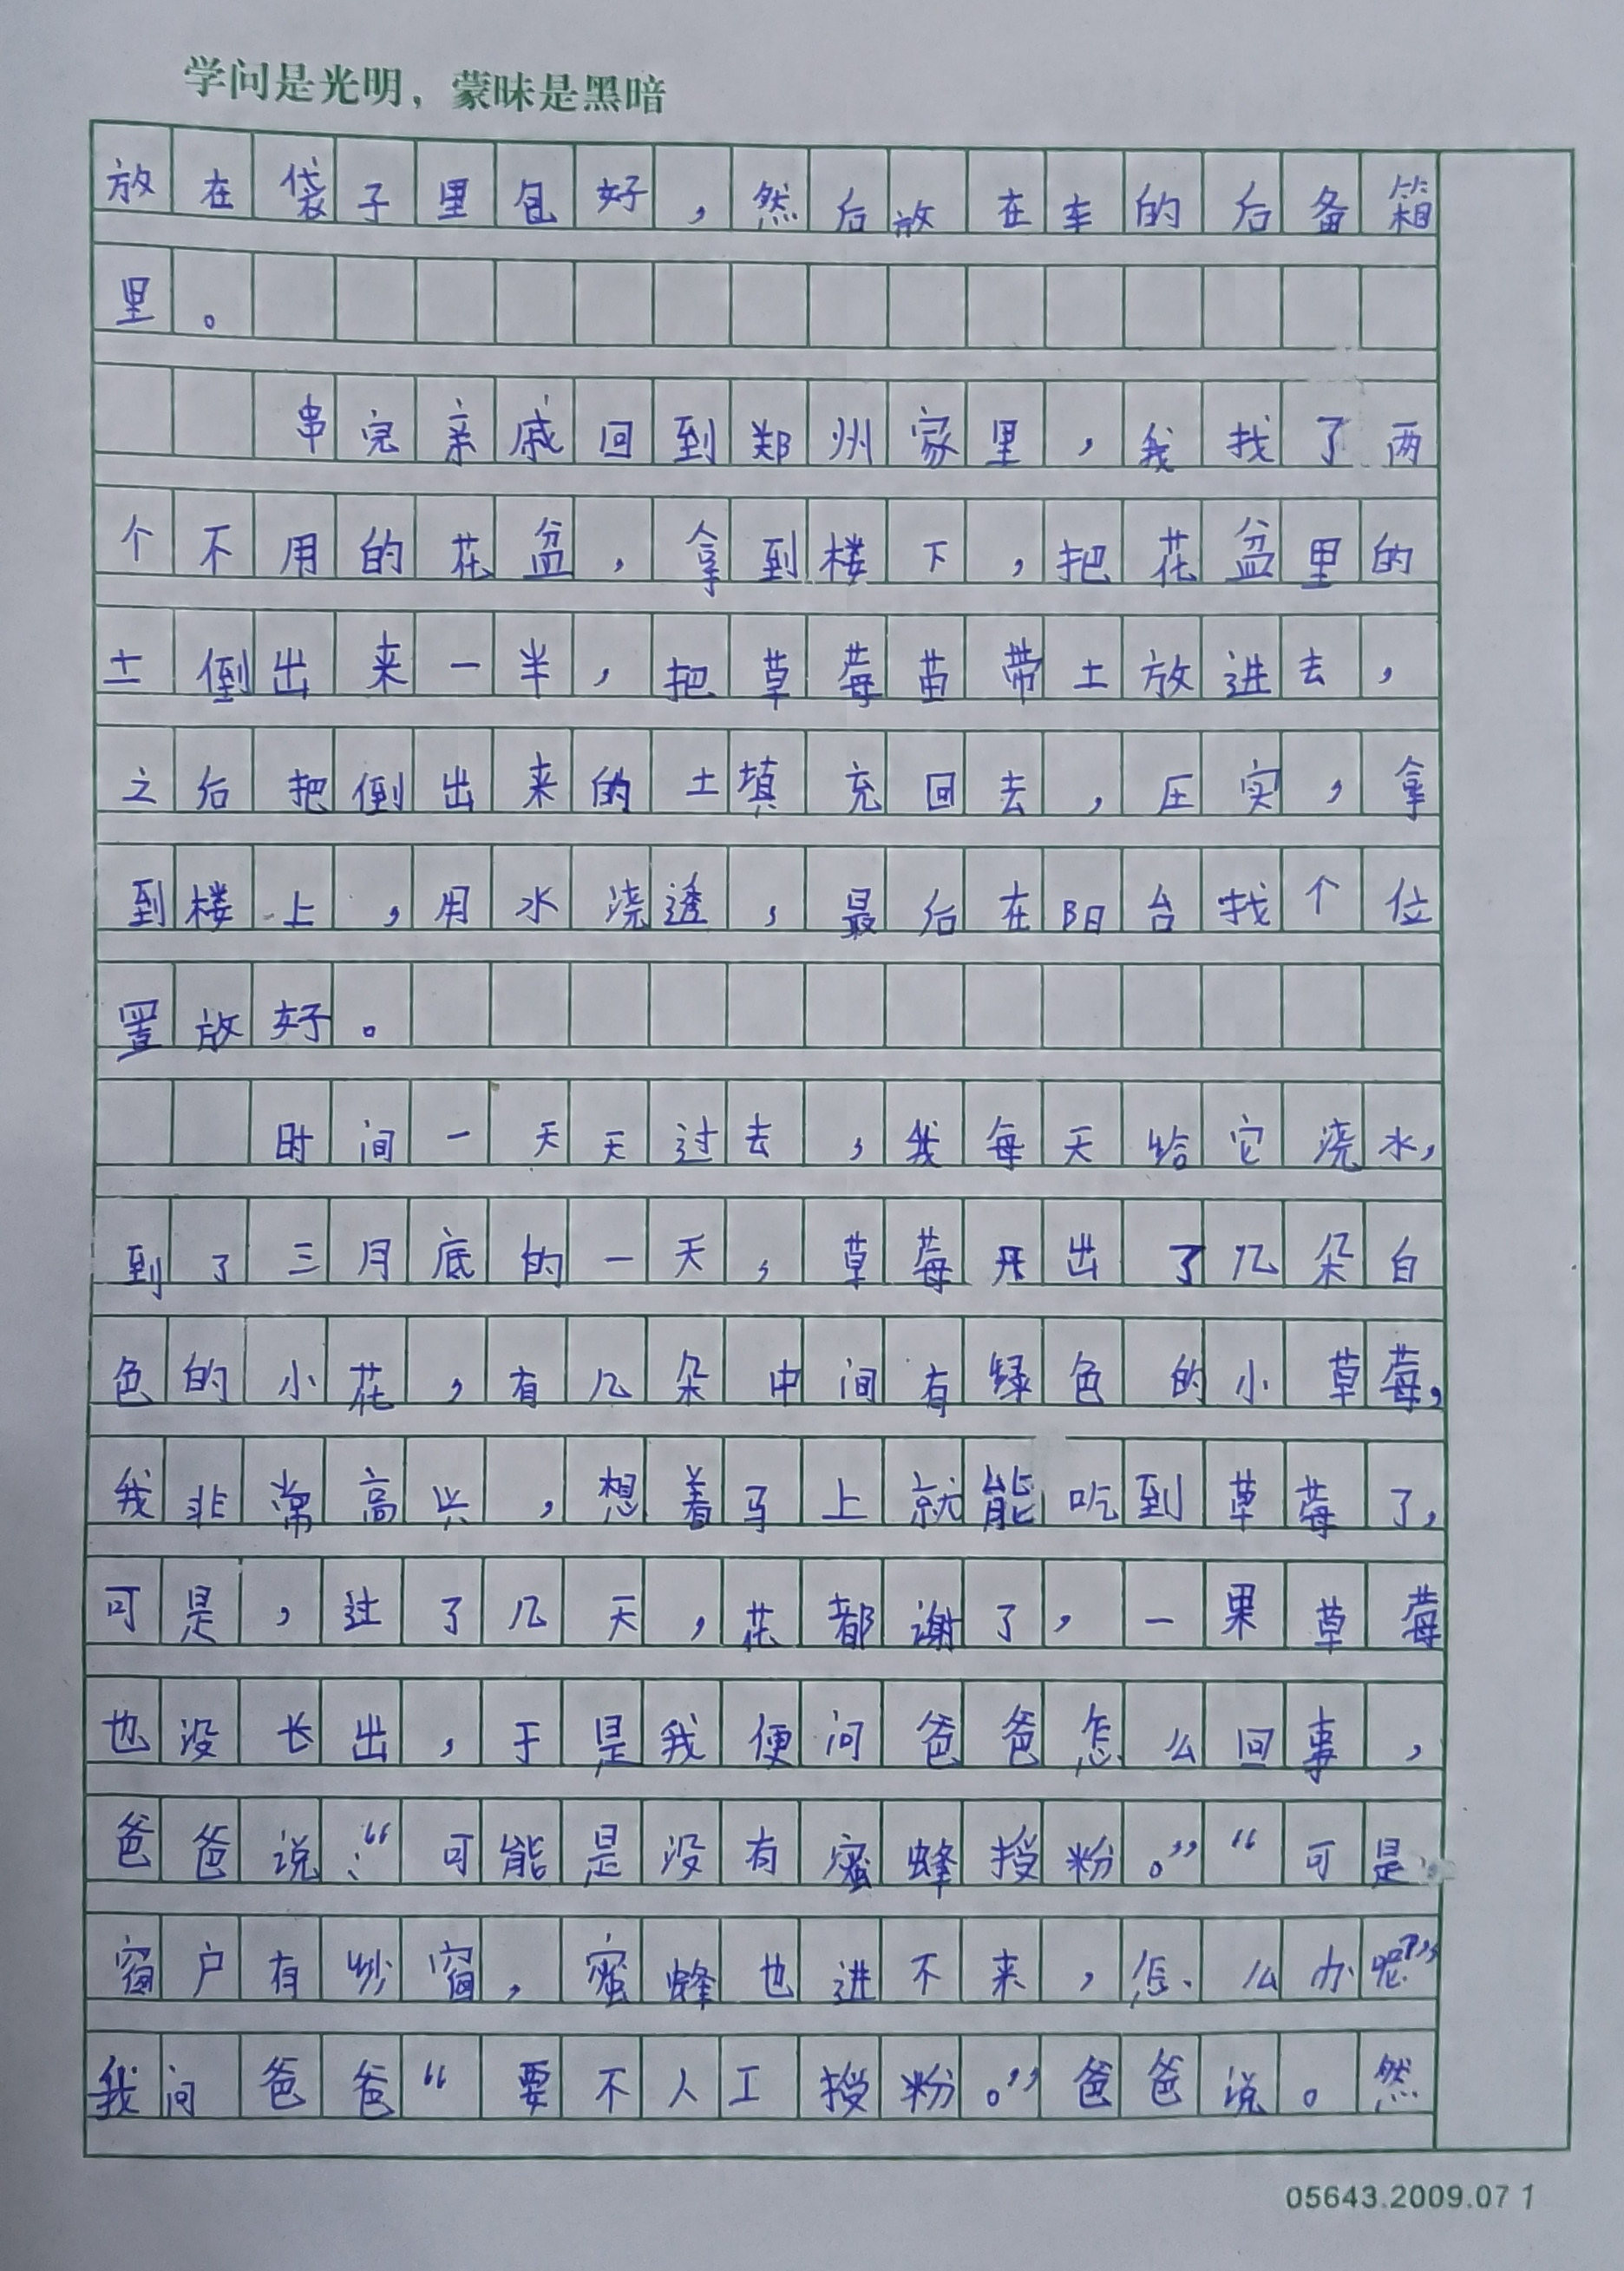 学问是光明，蒙昧是黑暗
放在袋子里包好，然后放在车的后备箱
里。
串完亲戚回到郑州家里，我找了两
个不用的花盆，拿到楼下，把花盆里的
土倒出来一半，把草莓苗带土放进去，
之后把倒出来的土填充回去，压实，拿
到楼上，用水浇透，最后在阳台找个位
置放好。
时间一天天过去，我每天给它浇水，
到了三月底的一天，草莓开出了几朵白
色的小花，有几朵中间有绿色的小草莓，
我非常高兴，想着马上就能吃到草莓了，
可是，过了几天，花都谢了，一果草莓
也没长出，于是我便问爸爸怎么回事，
爸爸说：“可能是没有蜜蜂授粉。”“可是
窗户有纱窗，蜜蜂也进不来，怎么办呢？”
我问爸爸“要不人工授粉。”爸爸说。然
05643.2009.07 1